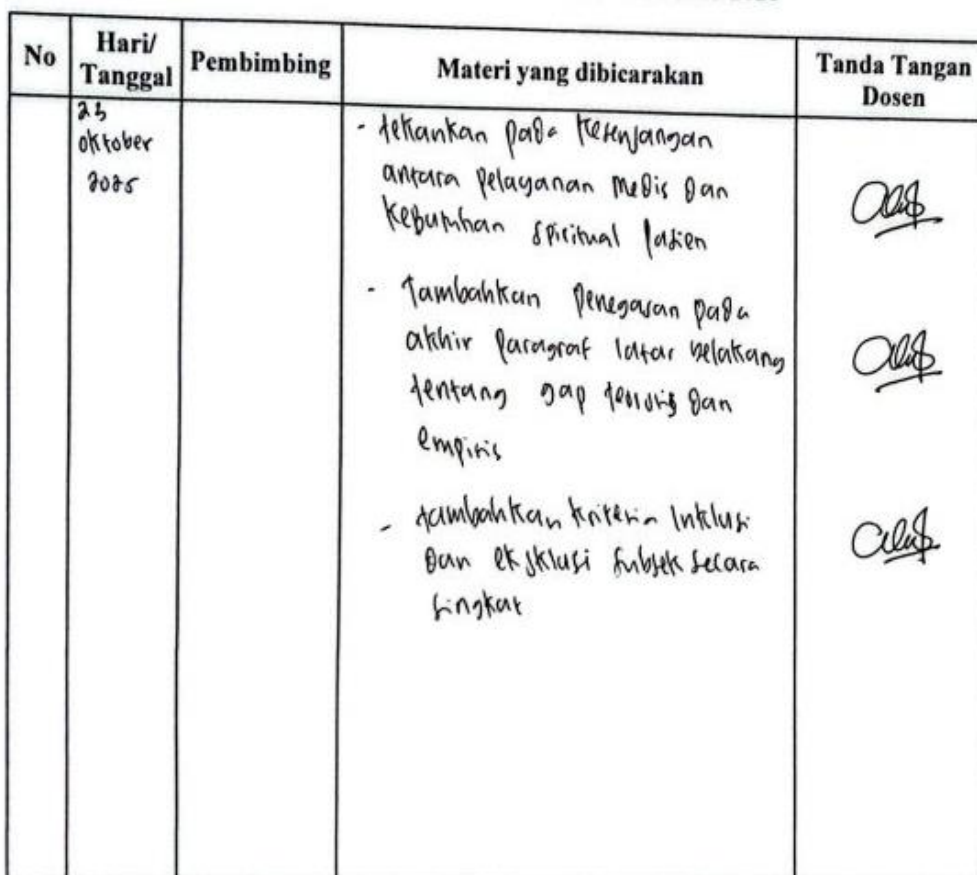 No
Hari/
Tanggal
Pembimbing
Materi yang dibicarakan
Tanda Tangan
Dosen
23
oktober
2025
- tekankan pada kesenjangan
antara pelayanan medis dan
kebutuhan spiritual pasien
- Tambahkan penegasan pada
akhir paragraf latar belakang
tentang gap teoritis dan
empiris
- tambahkan kriteria inklusi
dan eksklusi subjek secara
singkat